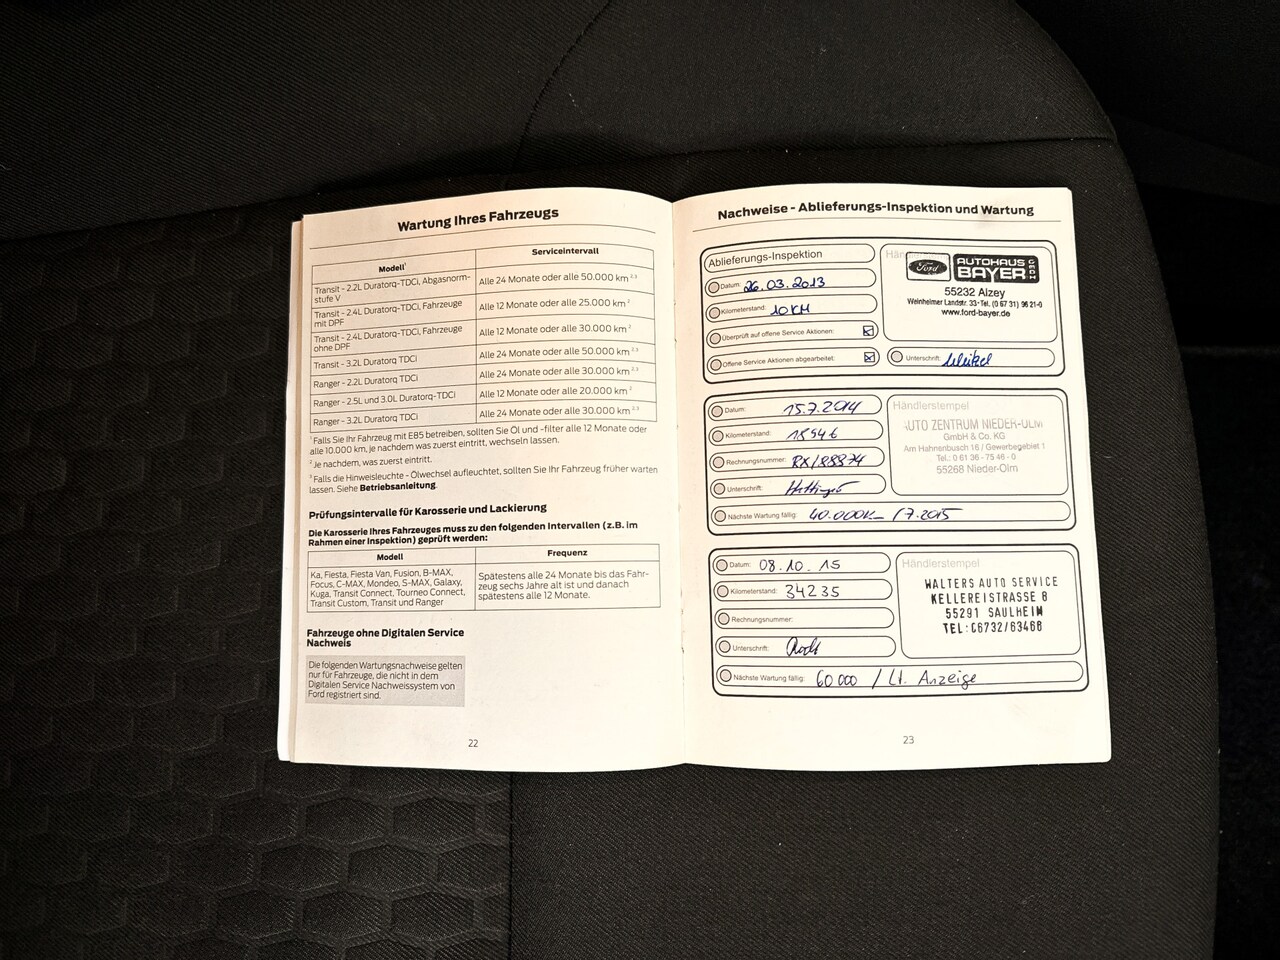 Wartung Ihres Fahrzeugs
Modell¹ Serviceintervall
Transit - 2.2L Duratorq-TDCi, Abgasnorm-
stufe V
Alle 24 Monate oder alle 50.000 km 2,3
Transit - 2.4L Duratorq-TDCi, Fahrzeuge
mit DPF
Alle 12 Monate oder alle 25.000 km 2
Transit - 2.4L Duratorq-TDCi, Fahrzeuge
ohne DPF
Alle 12 Monate oder alle 30.000 km 2
Transit - 3.2L Duratorq TDCi Alle 24 Monate oder alle 50.000 km 2,3
Ranger - 2.2L Duratorq TDCi Alle 24 Monate oder alle 30.000 km 2,3
Ranger - 2.5L und 3.0L Duratorq-TDCi Alle 12 Monate oder alle 20.000 km 2
Ranger - 3.2L Duratorq TDCi Alle 24 Monate oder alle 30.000 km 2,3
1 Falls Sie Ihr Fahrzeug mit E85 betreiben, sollten Sie Öl und -filter alle 12 Monate oder
alle 10.000 km, je nachdem was zuerst eintritt, wechseln lassen.
2 Je nachdem, was zuerst eintritt.
3 Falls die Hinweisleuchte - Ölwechsel aufleuchtet, sollten Sie Ihr Fahrzeug früher warten
lassen. Siehe Betriebsanleitung.
Prüfungsintervalle für Karosserie und Lackierung
Die Karosserie Ihres Fahrzeuges muss zu den folgenden Intervallen (z.B. im
Rahmen einer Inspektion) geprüft werden:
Modell Frequenz
Ka, Fiesta, Fiesta Van, Fusion, B-MAX,
Focus, C-MAX, Mondeo, S-MAX, Galaxy,
Kuga, Transit Connect, Tourneo Connect,
Transit Custom, Transit und Ranger
Spätestens alle 24 Monate bis das Fahr-
zeug sechs Jahre alt ist und danach
spätestens alle 12 Monate.
Fahrzeuge ohne Digitalen Service
Nachweis
Die folgenden Wartungsnachweise gelten
nur für Fahrzeuge, die nicht in dem
Digitalen Service Nachweissystem von
Ford registriert sind.
22
Nachweise - Ablieferungs-Inspektion und Wartung
Ablieferungs-Inspektion
Datum: 26.03.2013
Kilometerstand: 10 KM
Überprüft auf offene Service Aktionen:
Offene Service Aktionen abgearbeitet:
Ford AUTOHAUS BAYER GMBH
55232 Alzey
Weinheimer Landstr. 33 - Tel. (0 67 31) 96 21-0
www.ford-bayer.de
Unterschrift:
Datum: 15.7.2014
Kilometerstand: 18546
Rechnungsnummer: RX/88874
Unterschrift:
Nächste Wartung fällig: 40.000K / 7.2015
Händlerstempel
AUTO ZENTRUM NIEDER-OLM
GmbH & Co. KG
Am Hahnenbusch 16 / Gewerbegebiet 1
Tel.: 0 61 36 - 75 46 - 0
55268 Nieder-Olm
Datum: 08.10.15
Kilometerstand: 34235
Rechnungsnummer:
Unterschrift:
Nächste Wartung fällig: 60 000 / Lt. Anzeige
Händlerstempel
WALTERS AUTO SERVICE
KELLEREISTRASSE 8
55291 SAULHEIM
TEL: 06732/63468
23